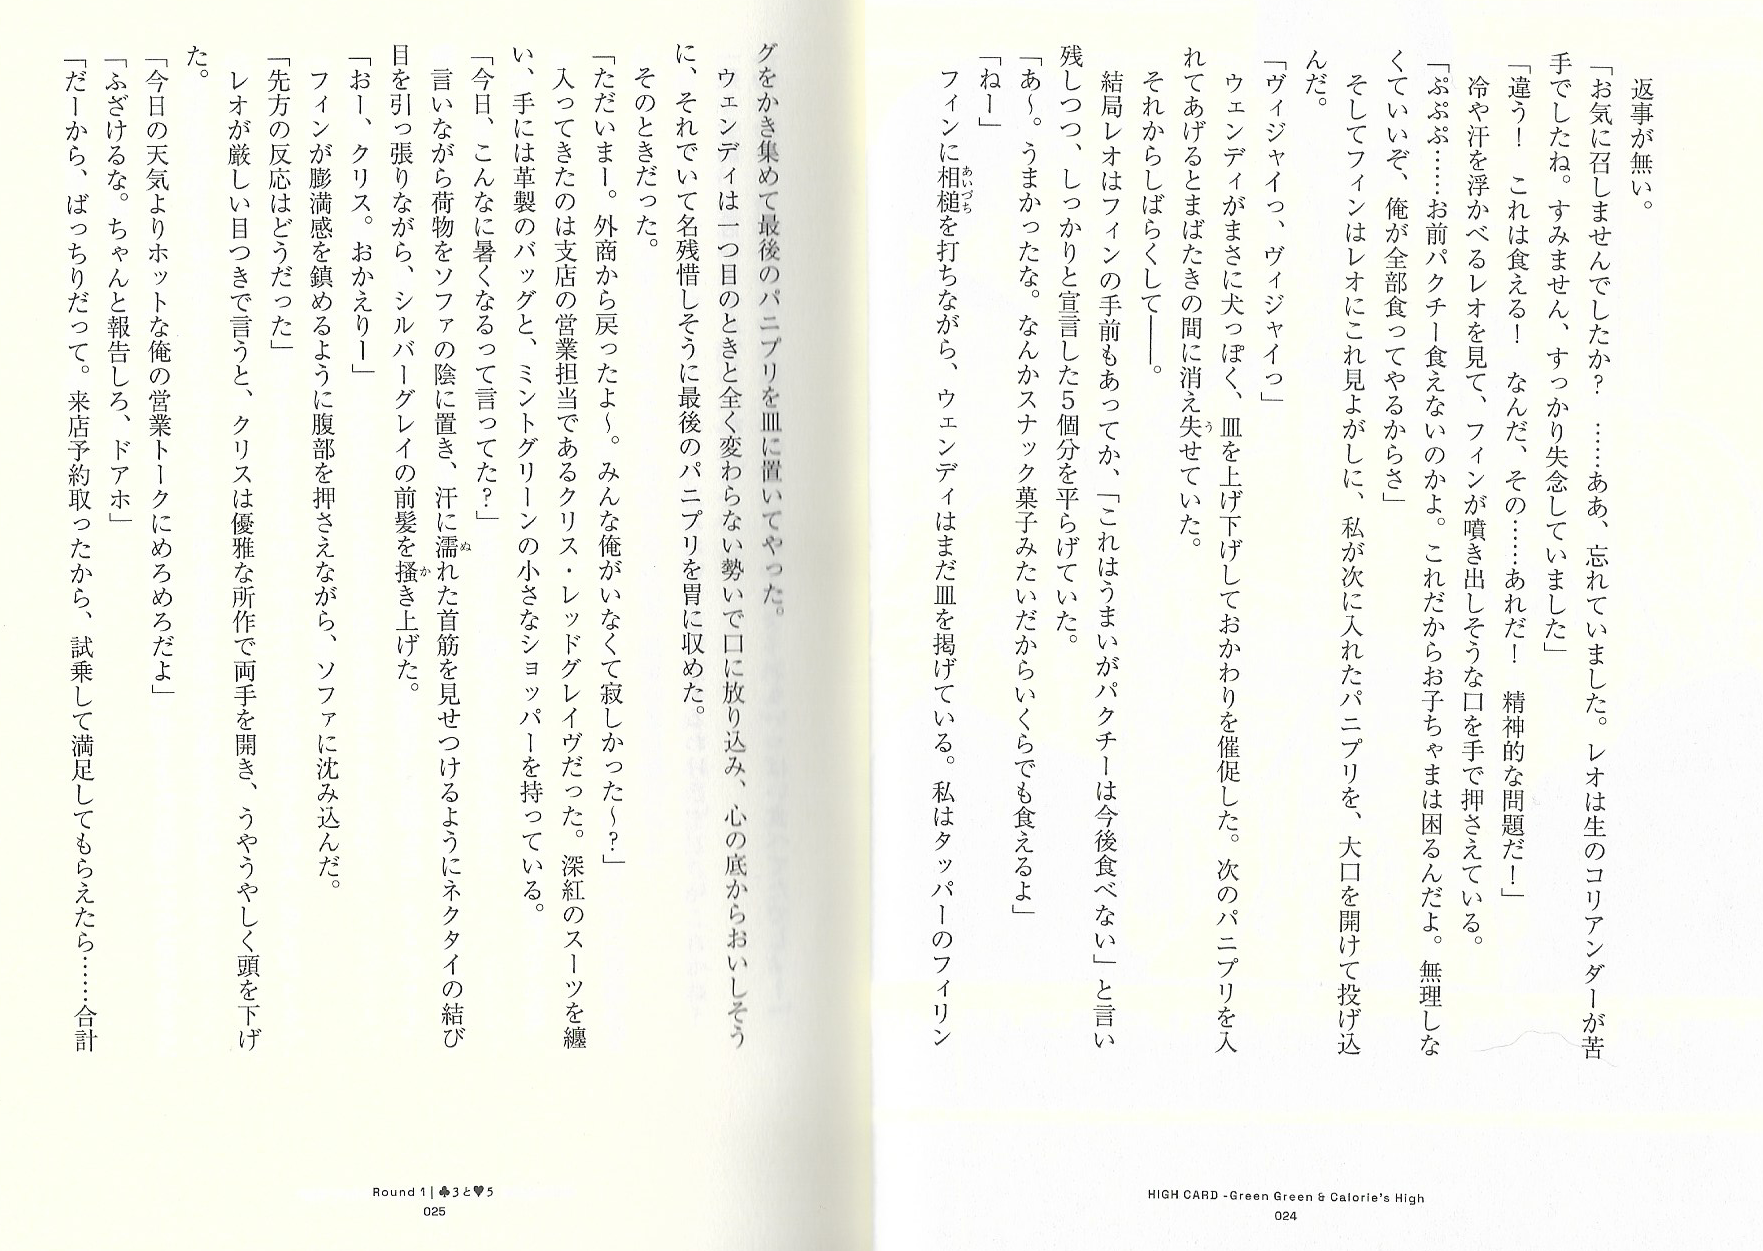 返事が無い。
「お気に召しませんでしたか？　……ああ、忘れていました。レオは生のコリアンダーが苦
手でしたね。すみません、すっかり失念していました」
「違う！　これは食える！　なんだ、その……あれだ！　精神的な問題だ！」
冷や汗を浮かべるレオを見て、フィンが噴き出しそうな口を手で押さえている。
「ぷぷぷ……お前パクチー食えないのかよ。これだからお子ちゃまは困るんだよ。無理しな
くていいぞ、俺が全部食ってやるからさ」
そしてフィンはレオにこれ見よがしに、私が次に入れたパニプリを、大口を開けて投げ込
んだ。
「ヴィジャイっ、ヴィジャイっ」
ウェンディがまさに犬っぽく、皿を上げ下げしておかわりを催促した。次のパニプリを入
れてあげるとまばたきの間に消え失せていた。
それからしばらくして――。
結局レオはフィンの手前もあってか、「これはうまいがパクチーは今後食べない」と言い
残しつつ、しっかりと宣言した5個分を平らげていた。
「あ～。うまかったな。なんかスナック菓子みたいだからいくらでも食えるよ」
「ねー」
フィンに相槌を打ちながら、ウェンディはまだ皿を掲げている。私はタッパーのフィリン
HIGH CARD -Green Green & Calorie's High
024
グをかき集めて最後のパニプリを皿に置いてやった。
ウェンディは一つ目のときと全く変わらない勢いで口に放り込み、心の底からおいしそう
に、それでいて名残惜しそうに最後のパニプリを胃に収めた。
そのときだった。
「ただいまー。外商から戻ったよ～。みんな俺がいなくて寂しかった～？」
入ってきたのは支店の営業担当であるクリス・レッドグレイヴだった。深紅のスーツを纏
い、手には革製のバッグと、ミントグリーンの小さなショッパーを持っている。
「今日、こんなに暑くなるって言ってた？」
言いながら荷物をソファの陰に置き、汗に濡れた首筋を見せつけるようにネクタイの結び
目を引っ張りながら、シルバーグレイの前髪を掻き上げた。
「おー、クリス。おかえりー」
フィンが膨満感を鎮めるように腹部を押さえながら、ソファに沈み込んだ。
「先方の反応はどうだった」
レオが厳しい目つきで言うと、クリスは優雅な所作で両手を開き、うやうやしく頭を下げ
た。
「今日の天気よりホットな俺の営業トークにめろめろだよ」
「ふざけるな。ちゃんと報告しろ、ドアホ」
「だーから、ばっちりだって。来店予約取ったから、試乗して満足してもらえたら……合計
Round 1 | ♣3と♥5
025